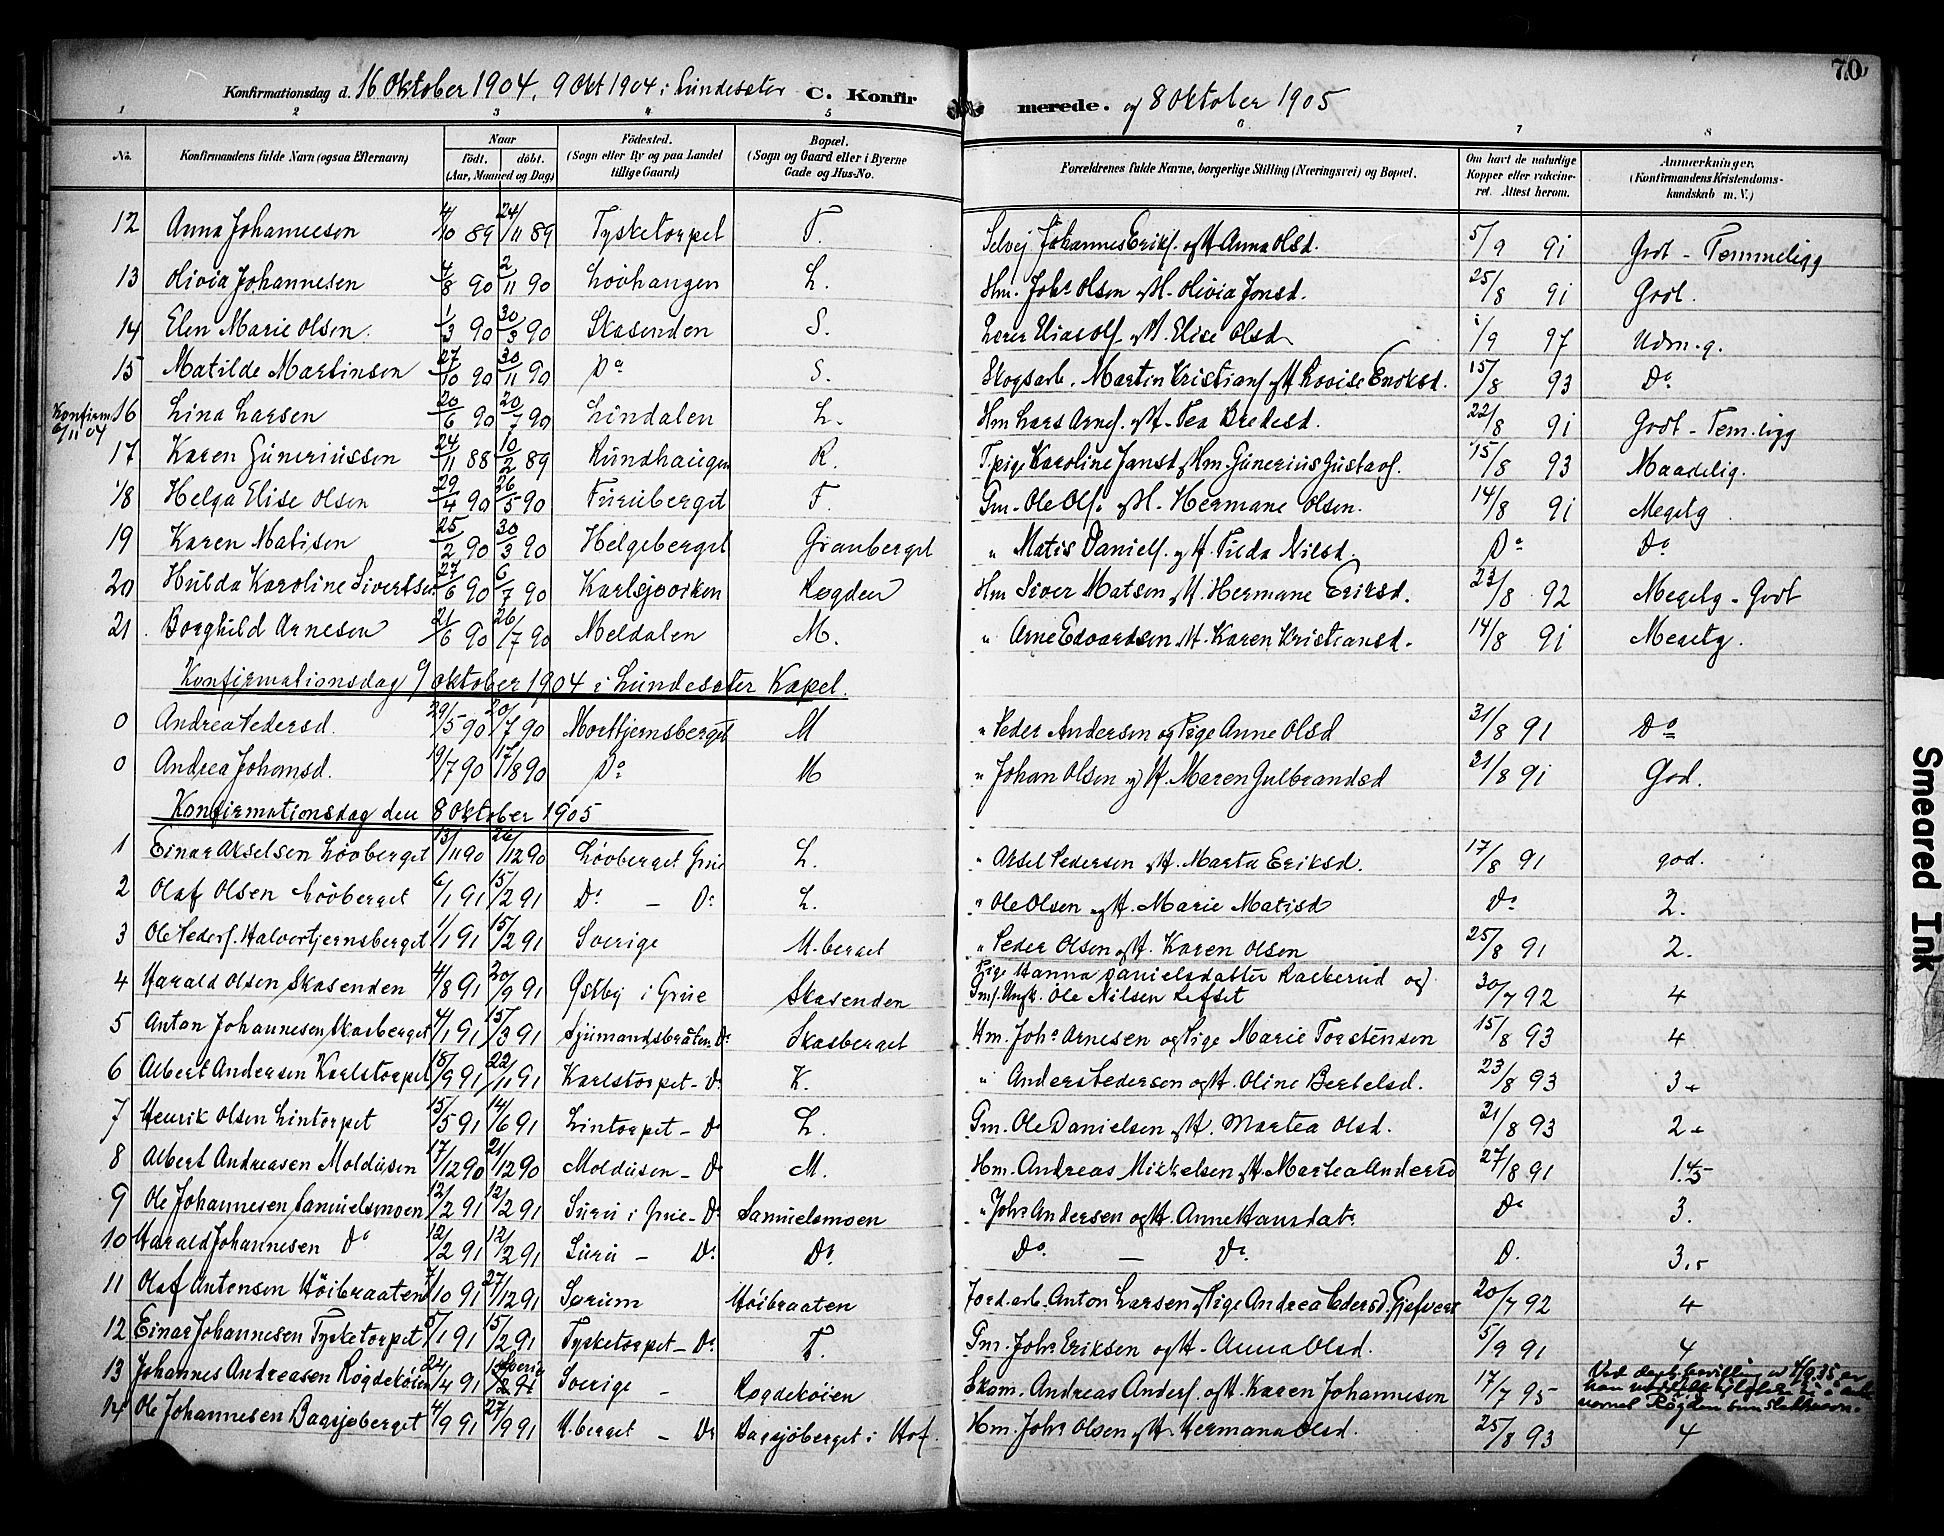 70
Konfirmationsdag d. 16 Oktober 1904. 9 Okt 1904 i Lundesæter C. Konfirmerede. og 8 Oktober 1905
1 2 3 4 5 6 7 8
No. Konfirmandens fulde Navn (ogsaa Efternavn) Naar födt. döbt. (Aar, Maaned og Dag) Födested. (Sogn eller By og paa Landet tillige Gaard) Bopæl. (Sogn og Gaard eller i Byerne Gade og Hus-No. Forældrenes fulde Navne, borgerlige Stilling (Næringsvei) og Bopæl. Om havt de naturlige Kopper eller vakcineret. Attest herom. Anmærkninger. (Konfirmandens Kristendomskundskab m. V.)
12 Anna Johannesen 4/10 89 24/11 89 Tysketorpet T. Selvej Johannes Eriks. og H. Anna Olsd. 5/9 91 Godt - Temmeligg
13 Olivia Johannesen 4/8 90 2/11 90 Lövhaugen L. Hm. Johs Olsen og H. Olivia Jonsd. 25/8 91 Godt.
14 Elen Marie Olsen. 1/3 90 30/3 90 Skasenden S. Lærer Elias Ols. og H. Elise Olsd /9 97 Udm. g.
15 Matilde Martinsen 27/10 90 30/11 90 Do S. Skogsarb. Martin Kristians. og H. Lovise Enoksd. 15/8 93 Do
Konfirm 6/11 04
16 Lina Larsen 20/6 90 20/7 90 Lindalen L. Hm Lars Arnes. og H. Tea Bredesd. 22/8 91 Godt - Tem. ligg
17 Karen Güneriussen 24/11 88 10/2 89 Rundhaugen R. T.pige Karoline Jansd og Hm. Günerius Gustavs. 15/8 93 Maadelig.
18 Helga Elise Olsen 29/4 90 26/5 90 Furuberget F. Gm. Ole Ols. og H. Hermane Olsen. 14/8 91 Megetg
19 Karen Matisen 25/2 90 30/3 90 Helgeberget Granberget " Matis Daniels. og H. Tilda Nilsd. Do Do
20 Hulda Karoline Sivertsen 27/6 90 6/7 90 Karlsjøviken Rogden Hm Siver Matsen og H. Hermane Eriksd. 23/8 92 Megetg - Godt
21 Borghild Arnesen 21/6 90 26/7 90 Meldalen M. " Arne Edvardsen og H. Karen Kristiansd. 14/8 91 Megetg.
Konfirmationsdag 9 oktober 1904 i Lundesæter Kapel.
0 Andrea Pedersd. 29/5 90 20/7 90 Morttjernsberget M " Peder Andersen og Pige Anne Olsd 31/8 91 Do
0 Andrea Johansd. 19/7 90 17/8 90 Do M " Johan Olsen og H. Maren Gulbrandsd 31/8 91 God.
Konfirmationsdag den 8 Oktober 1905
1 Einar Akselsen Lövberget 13/11 90 26/12 90 Lövberget Grue L. " Aksel Pedersen og H. Marta Eriksd. 17/8 91 god.
2 Olaf Olsen Lövberget 6/1 91 15/2 91 Do - Do L. " Ole Olsen og H. Marie Matisd Do 2.
3 Ole Peders. Halvortjernsberget 1/1 91 15/2 91 Sverige H. berget " Peder Olsen og H. Karen Olsen 25/8 91 2.
4 Harald Olsen Skasenden 4/8 91 20/9 91 Østby i Grue Skasenden Pige Hanna Danielsdatter Rackerud og Gms. Ungk. Ole Nilsen Refset 30/7 92 4
5 Anton Johannesen Skasberget 4/1 91 15/3 91 Sjümandsbråten Do Skasberget Hm. Johs Arnesen og Pige Marie Torstensen 15/8 93 4
6 Albert Andersen Karlstorpet /9 91 22/11 91 Karlstorpet - Do K. " Anders Pedersen og H. Oline Bertelsd. 23/8 93 3+
7 Henrik Olsen Lintorpet 15/5 91 14/6 91 Lintorpet - Do L. Gm. Ole Danielsen og H. Martea Olsd. 21/8 93 2+
8 Albert Andreasen Moldüsen 17/12 90 21/12 90 Moldüsen - Do M. Hm. Andreas Mikkelsen og H. Martea Andersd 27/8 91 1.5
9 Ole Johannesen Samuelsmoen 12/2 91 12/2 91 Suru i Grue - Do Samuelsmoen " Johs Andersen og H. Anne Hansdatr Do 3.
10 Harald Johannesen Do 12/2 91 12/2 91 Suru - Do Do. Do - Do D. 3,5
11 Olaf Antonsen Höibraaten 7/10 91 27/12 91 Sørum Höibraaten Jord. arb. Anton Larsen og Pige Andrea Pedersd. Gjefvert 20/7 92 4
12 Einar Johannesen Tysketorpet 5/1 91 15/2 91 Tysketorpet - Do T. Gm. Johs Eriksen og H. Anna Olsd. 5/9 91 4
13 Johannes Andreasen Rögdeköien 24/4 91 Sverige Sverige - Rogdeköien Skom. Andreas Anders. og H. Karen Johannesen 17/7 95 Ved bevilling av 4/9.35 er han Rögden som slektsnavn.
14 Ole Johannesen Bagsjöberget 4/9 91 27/9 91 H. berget - Do Bagsjöberget i Hof. Hm. Johs Olsen og H. Hermana Olsd. 25/8 93 4
Smeared Ink